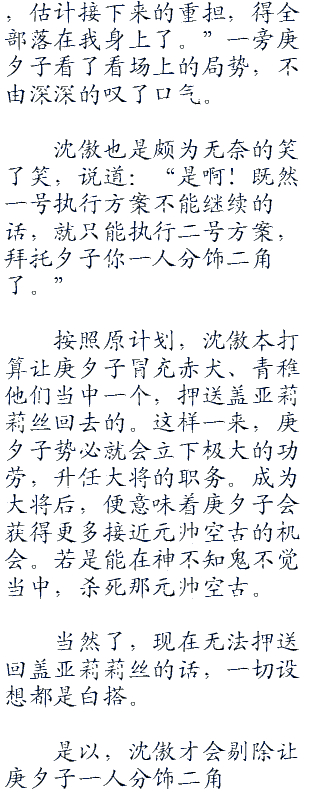 ，估计接下来的重担，得全
部落在我身上了。”一旁庚
夕子看了看场上的局势，不
由深深的叹了口气。
沈傲也是颇为无奈的笑
了笑，说道：“是啊！既然
一号执行方案不能继续的
话，就只能执行二号方案，
拜托夕子你一人分饰二角
了。”
按照原计划，沈傲本打
算让庚夕子冒充赤犬、青稚
他们当中一个，押送盖亚莉
莉丝回去的。这样一来，庚
夕子势必就会立下极大的功
劳，升任大将的职务。成为
大将后，便意味着庚夕子会
获得更多接近元帅空古的机
会。若是能在神不知鬼不觉
当中，杀死那元帅空古。
当然了，现在无法押送
回盖亚莉莉丝的话，一切设
想都是白搭。
是以，沈傲才会剔除让
庚夕子一人分饰二角